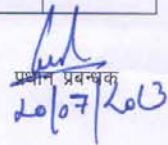 प्रधान प्रबन्धक
20/07/2013